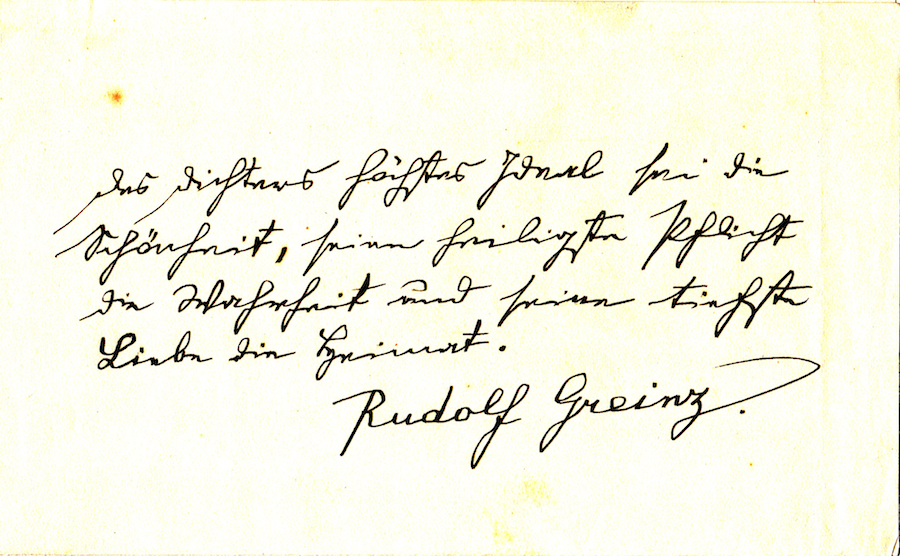 Des Dichters höchstes Ideal sei die
Schönheit, seine heiligste Pflicht
die Wahrheit und seine tiefste
Liebe die Heimat.
Rudolf Greinz.